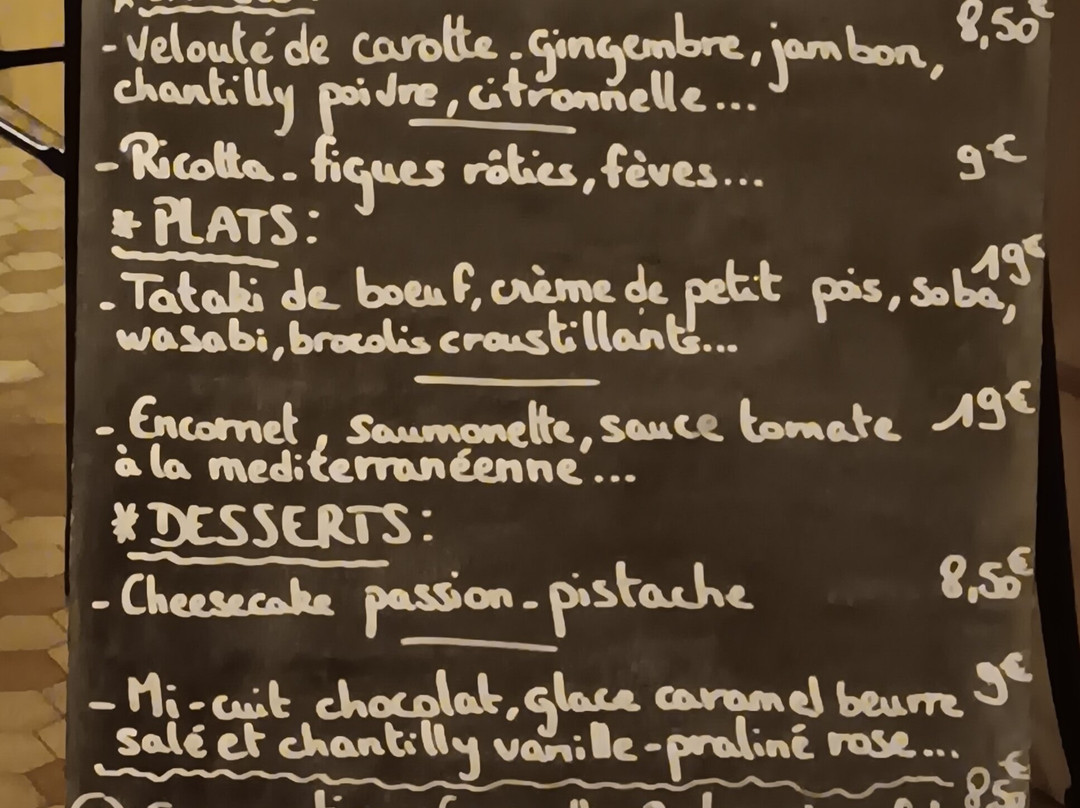 - Velouté de carotte - gingembre, jambon, 8,50€
chantilly poivre, citronnelle...
- Ricotta - figues rôties, fèves... 9€
* PLATS:
- Tataki de boeuf, crème de petit pois, soba, 19€
wasabi, brocolis croustillants...
- Encornet, saumonette, sauce tomate 19€
à la mediterranéenne...
* DESSERTS:
- Cheesecake passion - pistache 8,50€
- Mi-cuit chocolat, glace caramel beurre 9€
salé et chantilly vanille-praliné rose...